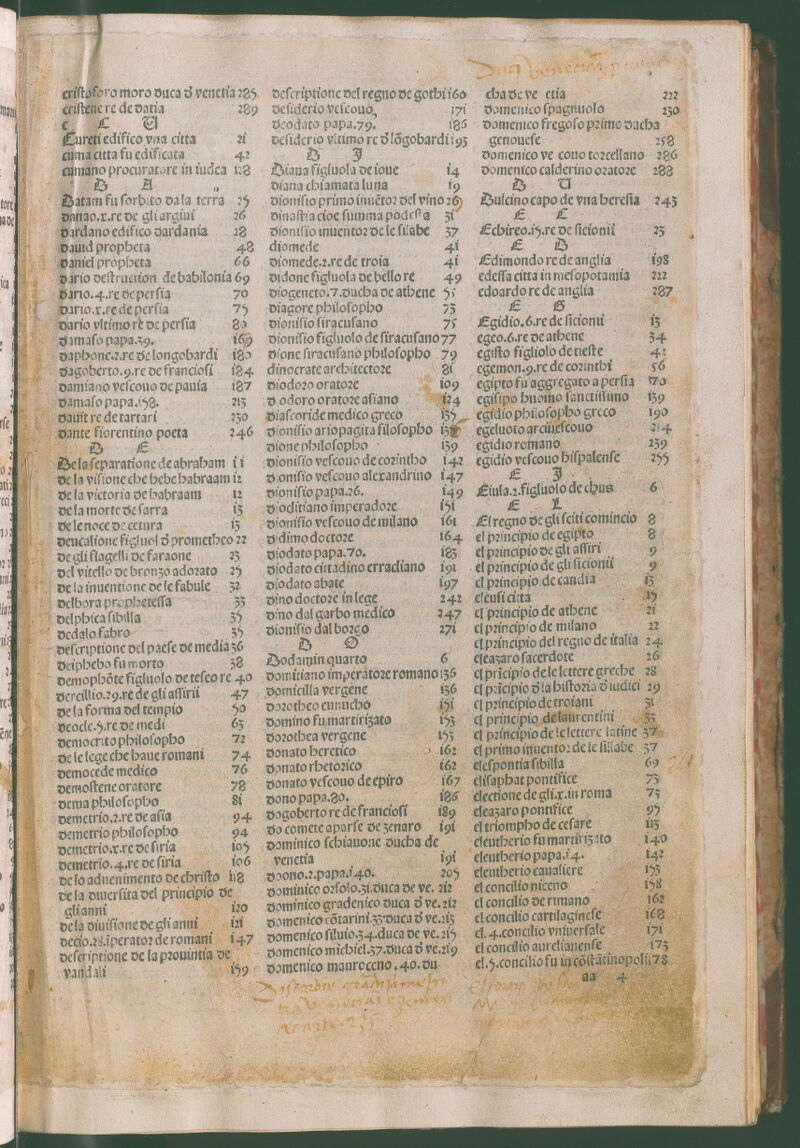 cristoforo moro duca đ venetia 285
cristene re de datia 289
c C U
Cureti edifico vna citta 21
cuma citta fu edificata 42
cumano procuratore in iudea 118
D A
Datam fu sorbito da la terra 25
danao.x.re de gli argiui 26
dardano edifico dardania 28
dauid propheta 48
daniel propheta 66
dario destruction de babilonia 69
dario.4.re de persia 70
dario.x.re de persia 75
dario vltimo re de persia 80
damaso papa.39. 169
daphone.2.re de longobardi 180
dagoberto.9.re de franciosi 184
damiano vescouo de pauia 187
damaso papa.158. 213
dauit re de tartari 230
dante fiorentino poeta 246
D E
De la separatione de abraham 11
de la visione che hebe habraam 12
de la victoria de habraam 12
de la morte de sarra 13
de le noce de cetura 13
deucalione figluol đ prometheo 22
de gli flagelli de faraone 23
del vitello de bronzo adorato 25
de la inuentione de le fabule 32
delbora prophetessa 33
delphica sibilla 35
dedalo fabro 35
descriptione del paese de media 36
deiphebo fu morto 38
demophōte figluolo de teseo re 40
dercillio.29.re de gli assirii 47
de la forma del tempio 50
deocle.5.re de medi 63
democrito philosopho 72
de le lege che haue romani 74
democede medico 76
demostene oratore 78
dema philosopho 81
demetrio.2.re de asia 94
demetrio philosopho 94
demetrio.x.re de siria 105
demetrio.4.re de siria 106
de lo aduenimento de christo 118
de la diuersita del principio de
gli anni 120
de la diuisione de gli anni 121
decio.28.īperator de romani 147
descriptione de la prouintia de
vandali 159
descriptione del regno de gothi 160
desiderio vescouo 171
deodato papa.79. 186
desiderio vltimo re đ lōgobardi 193
D J
Diana figluola de ioue 14
diana chiamata luna 19
dionisio primo inuētor del vino 26
dinastia cioe summa podesta 31
dionisio inuentor de le silabe 37
diomede 41
diomede.2.re de troia 41
didone figluola de bello re 49
diogeneto.7.ducha de athene 51
diagore philosopho 73
dionisio siracusano 75
dionisio figluolo de siracusano 77
dione siracusano philosopho 79
dinocrate architectore 81
diodoro oratore 109
diodoro oratore asiano 124
diascoride medico greco 135
dionisio ariopagita filosopho
dione philosopho 139
dionisio vescouo de corintho 142
dionisio vescouo alexandrino 147
dionisio papa.26. 149
dioclitiano imperadore 151
dionisio vescouo de milano 161
didimo doctore 164
diodato papa.70. 183
diodato cittadino erracliano 191
diodato abate 197
dino doctore in lege 242
dino dal garbo medico 247
dionisio dal borgo 271
D O
Dodamin quarto 6
domitiano imperatore romano 136
domicilla vergene 136
dorotheo eunucho 151
domino fu martirizato 153
dorothea vergene 153
donato heretico 162
donato rhetorico 162
donato vescouo de epiro 167
dono papa.80. 186
dogoberto re de franciosi 189
do comete aparse de zenaro 191
dominico schiauone ducha de
venetia 191
doono.2.papa.140. 205
dominico orsolo.31.duca de ve. 212
dominico gradenico duca đ ve. 212
domenico cōtarini.33.duca đ ve. 213
domenico siluio.34.duca de ve. 215
domenico michiel.37.duca đ ve. 219
domenico mauroceno.40.du
cha de ve etia 222
domenico spagnuolo 230
domenico fregoso primo ducha
genouese 258
domenico ve couo torcellano 286
domenico calderino oratore 288
D U
Dulcino capo de vna heresia 243
E C
Echireo.15.re de sicionii 23
E D
Edimondo re de anglia 198
edessa citta in mesopotamia 222
edoardo re de anglia 287
E G
Egidio.6.re de sicionii 13
egeo.6.re de athene 34
egisto figliolo de tieste 41
egemon.9.re de corinthi 56
egipto fu aggregato a persia 170
egisipo huomo sanctissimo 139
egidio philosopho greco 190
egeluoto arciuescouo 214
egidio romano 239
egidio vescouo hispalense 255
E J
Eiula.2.figluolo de chus 6
E L
El regno de gli sciti comincio 8
el principio de egipto 8
el principio de gli assiri 9
el principio de gli sicionii 9
el principio de candia 13
eleusi citta 19
el principio de athene 21
el principio de milano 22
el principio del regno de italia 24
eleazaro sacerdote 26
el prīcipio de le lettere greche 28
el prīcipio đ la historia đ iudici 29
el principio de troiani 31
el principio de laurentini 33
el principio de le lettere latine 37
el primo inuentor de le sillabe 37
elespontia sibilla 69
elisaphat pontifice 73
electione de gli.x.in roma 73
eleazaro pontifice 95
el triompho de cesare 113
eleutherio fu martirizato 140
eleutherio papa.14. 142
eleutherio caualiere 153
el concilio niceno 158
el concilio de rimano 162
el concilio cartilaginese 168
el.4.concilio vniuersale 171
el concilio aurelianense 173
el.5.concilio fu in cōstātinopoli 178
aa 4